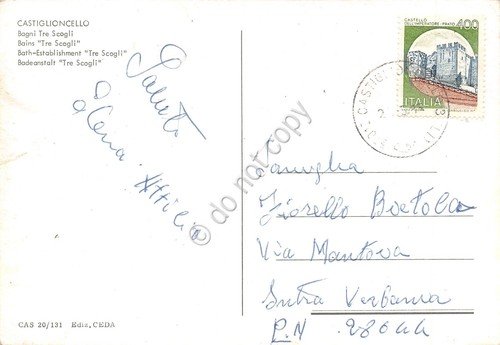 CASTIGLIONCELLO
Bagni Tre Scogli
Bains "Tre Scogli"
Bath-Establishment "Tre Scogli"
Badeanstalt "Tre Scogli"
CASTELLO
DELL'IMPERATORE - PRATO
400
ITALIA
Saluti
Elena Attilio
© do not copy
Famiglia
Fiorello Boetola
Via Mantova
Intra Verbania
P.N 28044
CAS 20/131 Ediz. CEDA